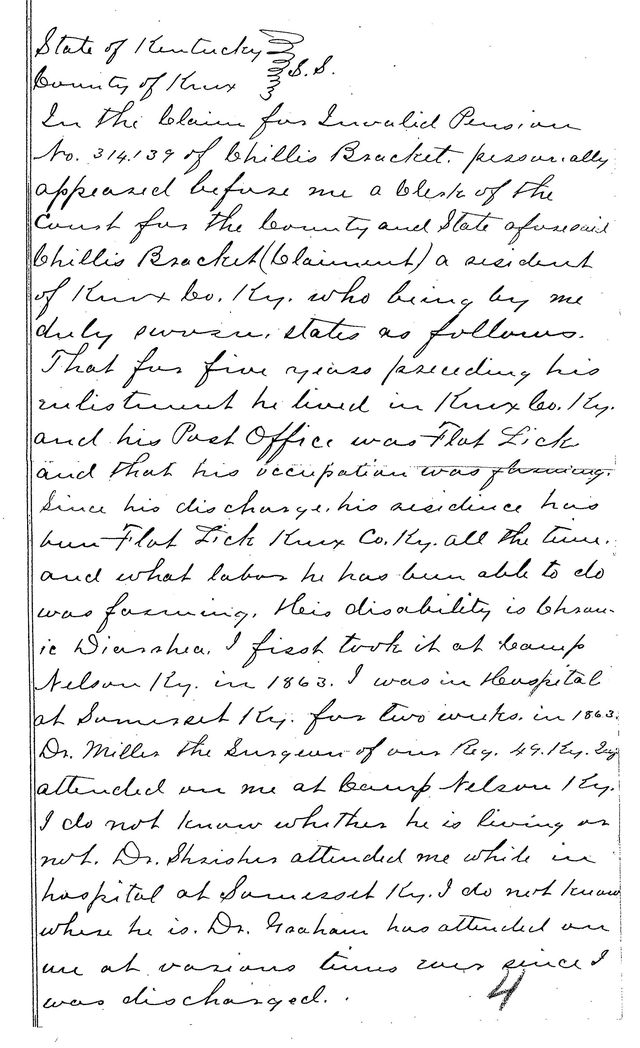 State of Kentucky
County of Knox } S.S.
In the Claim for Invalid Pension
No. 314.139 of Chillis Bracket. personally
appeared before me a Clerk of the
Court for the County and State aforesaid
Chillis Bracket (Claiment) a resident
of Knox Co. Ky. who being by me
duly sworn, states as follows.
That for five years preceding his
enlistment he lived in Knox Co. Ky.
and his Post Office was Flat Lick
and that his occupation was farming.
Since his discharge, his residence has
been Flat Lick Knox Co. Ky. all the time.
and what labor he has been able to do
was farming. His disability is Chron-
ic Diarrhea. I first took it at Camp
Nelson Ky. in 1863. I was in Hospital
at Somerset Ky. for two weeks. in 1863.
Dr. Miller the Surgeon of our Reg. 49. Ky.
attended on me at Camp Nelson Ky.
I do not know whether he is living or
not. Dr. attended me while in
hospital at Somerset Ky. I do not know
where he is. Dr. Graham has attended on
me at various times ever since I
was discharged.
4